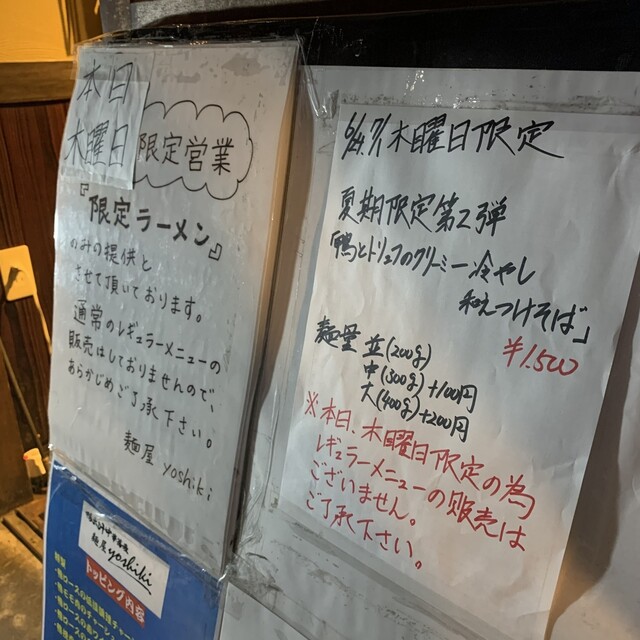 本日
木曜日
限定営業
『限定ラーメン』
のみの提供と
させて頂いております。
通常のレギュラーメニューの
販売はしておりませんので、
あらかじめご了承下さい。
麺屋 yoshiki
6/4.7/1 木曜日限定
夏期限定第2弾
「鴨とトリュフのクリーミー冷やし
和えつけそば」
¥1.500
麺量 並(200g)
中(300g)+100円
大(400g)+200円
※本日、木曜日限定の為
レギュラーメニューの販売は
ございません。
ご了承下さい。
麺屋 yoshiki
トッピング内容